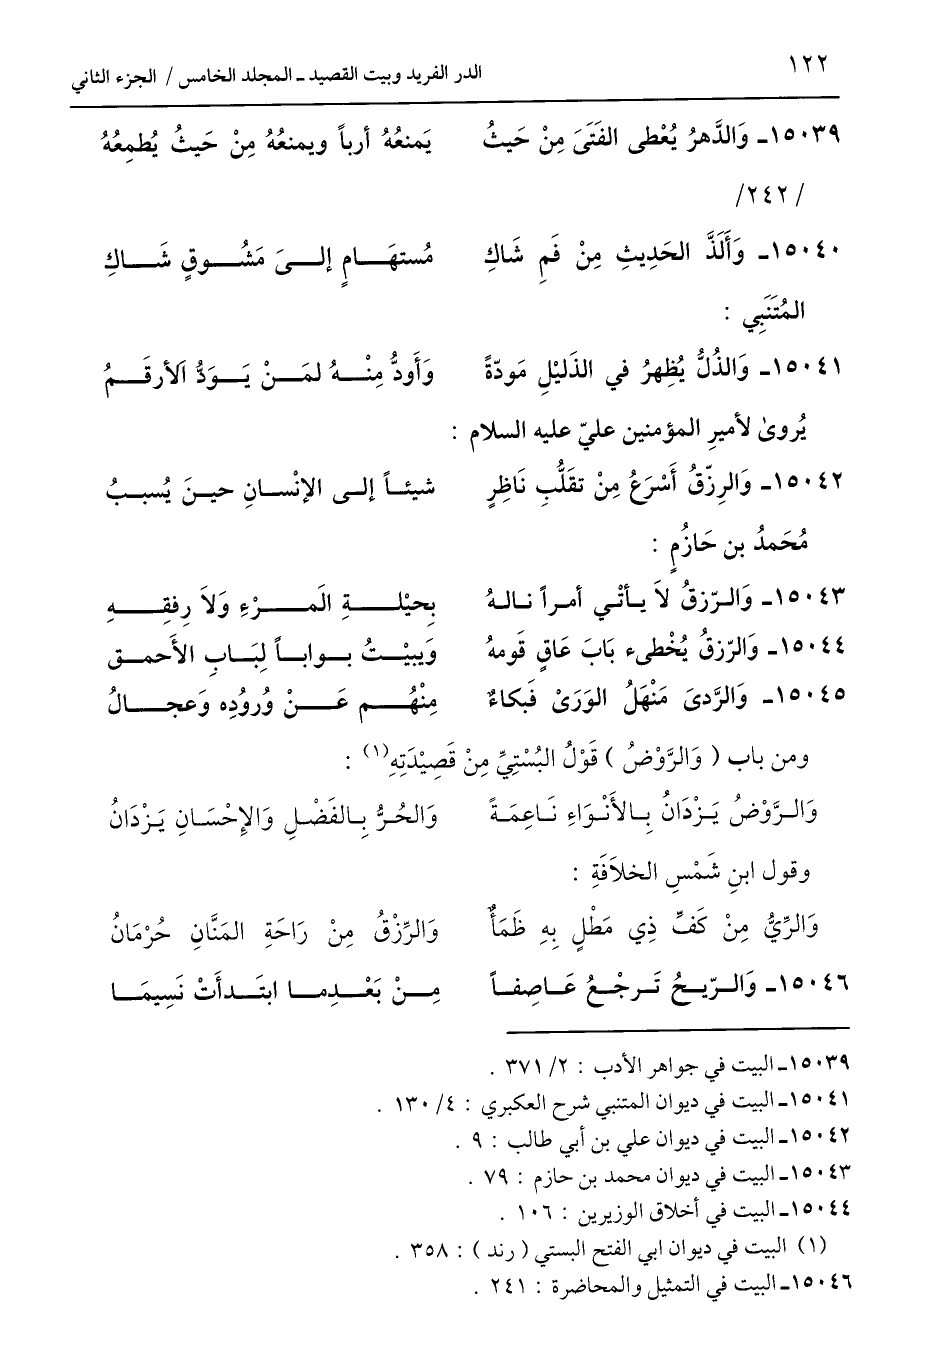 ١٢٢ الدر الفريد وبيت القصيد ـ المجلد الخامس / الجزء الثاني
١٥٠٣٩ـ وَالدَّهرُ يُعْطى الفَتَىَ مِنْ حَيثُ يَمنعُهُ أرباً ويمنعُهُ مِنْ حَيثُ يُطمِعُهُ
/٢٤٢/
١٥٠٤٠ـ وَأَلَذَّ الحَدِيثِ مِنْ فَمِ شَاكِ مُستهَامٍ إلىَ مَشُوقٍ شَاكِ
المُتَنَبِي :
١٥٠٤١ـ وَالذُلُّ يُظِهرُ في الذَليْلِ مَودّةً وَأَودُّ مِنْهُ لمَنْ يَودُّ اَلأرقَمُ
يُروىٰ لأميرِ المؤمنين عليّ عليه السلام :
١٥٠٤٢ـ وَالرِزّقُ أَسْرَعُ مِنْ تقَلُّبِ نَاظِرٍ شيئاً إلى الإنْسانِ حينَ يُسببُ
مُحَمدُ بن حَازُمٍ :
١٥٠٤٣ـ وَالرّزقُ لاَ يأتْي أمراً نالهُ بِحيْلةِ المَرْءِ وَلاَ رِفقِهِ
١٥٠٤٤ـ وَالرّزقُ يُخْطىء بَابَ عَاقٍ قَومهُ وَيبيْتُ بواباً لِبَابِ الأَحمق
١٥٠٤٥ـ وَالرَّدىَ مَنْهَلُ الوَرَىْ فَبكاءٌ مِنْهُم عَنْ وُرُودِه وَعجالُ
ومن باب ( وَالرَّوْضُ ) قَوْلُ البُسْتِيِّ مِنْ قَصِيْدَتِهِ(١) :
وَالرَّوْضُ يَزْدَانُ بِالأَنْوَاءِ نَاعِمَةً وَالحُرُّ بِالفَضْلِ وَالإِحْسَانِ يَزْدَانُ
وقول ابنِ شَمْسِ الخلاَفَةِ :
وَالرِّيُّ مِنْ كَفِّ ذِي مَطْلٍ بِهِ ظَمَأٌ وَالرِّزْقُ مِنْ رَاحَةِ المَنَّانِ حُرْمَانُ
١٥٠٤٦ـ وَالرّيحُ تَرجْعُ عَاصِفاً مِنْ بَعْدِما ابتَدأَتْ نَسِيمَا
١٥٠٣٩ـ البيت في جواهر الأدب : ٢/ ٣٧١ .
١٥٠٤١ـ البيت في ديوان المتنبي شرح العكبري : ٤/ ١٣٠ .
١٥٠٤٢ـ البيت في ديوان علي بن أبي طالب : ٩ .
١٥٠٤٣ـ البيت في ديوان محمد بن حازم : ٧٩ .
١٥٠٤٤ـ البيت في أخلاق الوزيرين : ١٠٦ .
(١) البيت في ديوان ابي الفتح البستي ( رند ) : ٣٥٨ .
١٥٠٤٦ـ البيت في التمثيل والمحاضرة : ٢٤١ .